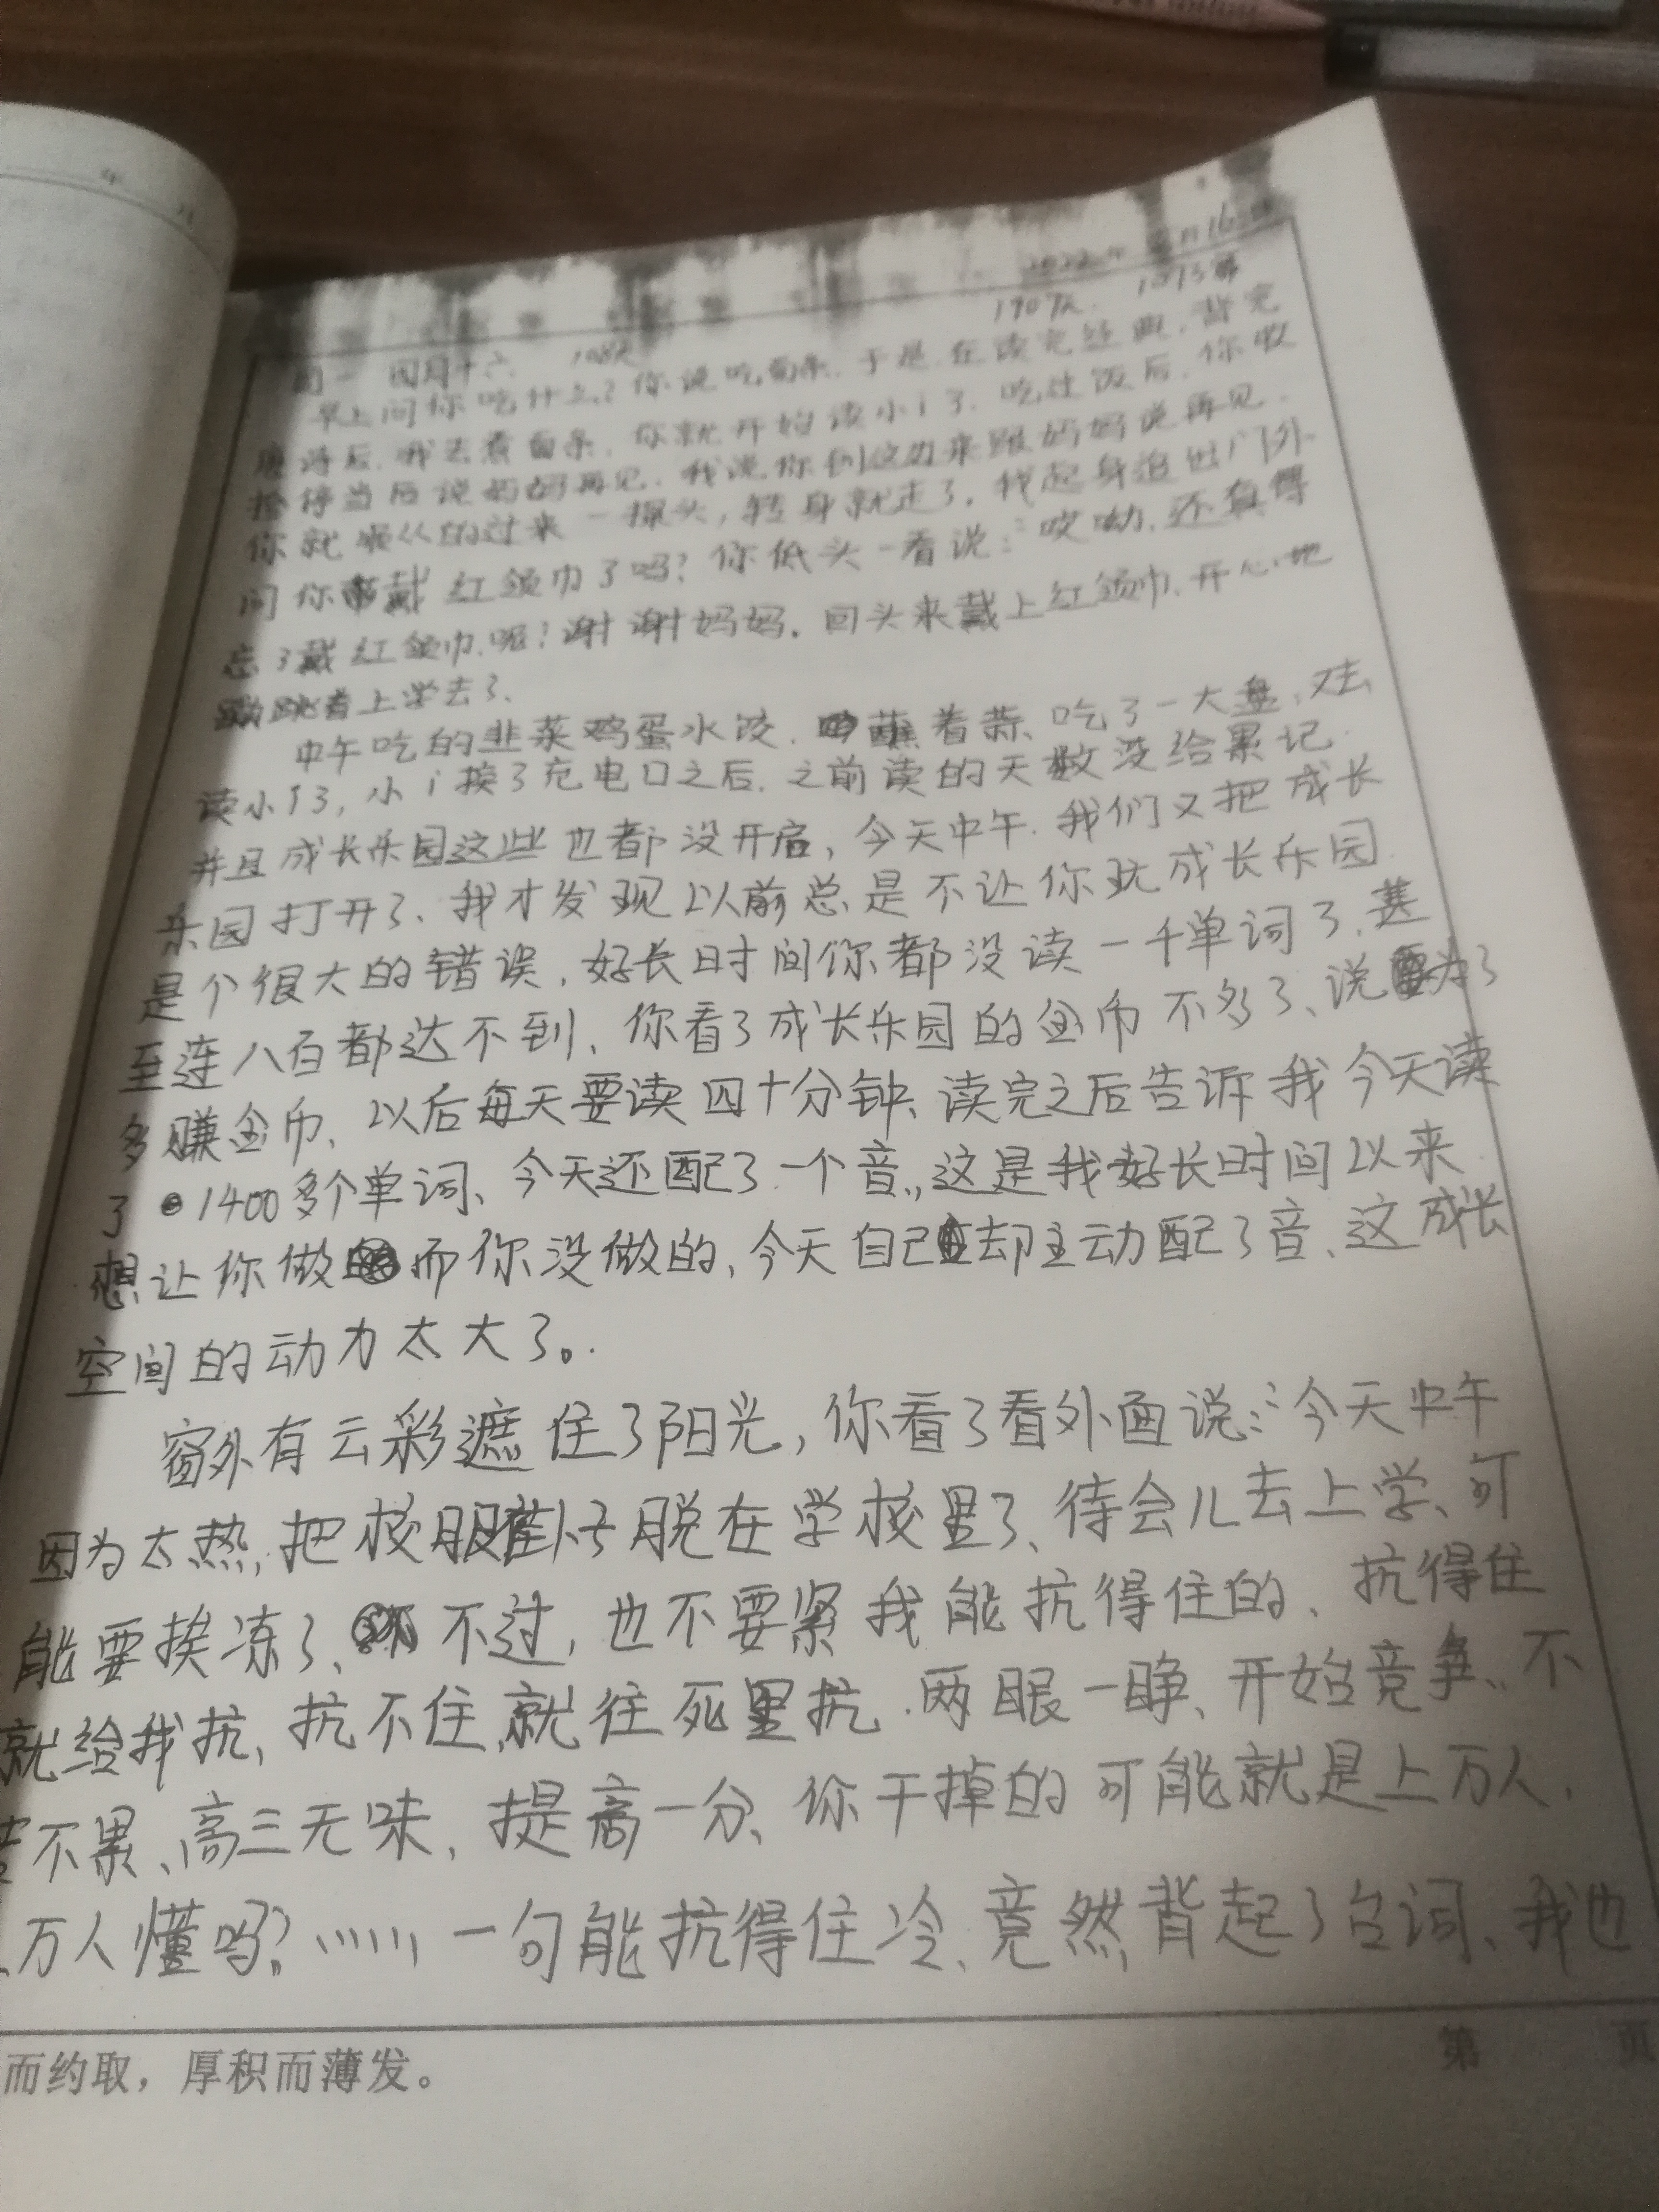 2022年 月16
1909天 1013第
周一 四月十六 108天
早上问你吃什么?你说吃面条.于是.在读完经典.背完
唐诗后.我去煮面条.你就开始读小i了.吃过饭后.你收
拾停当后说妈妈再见.我说你到这边来跟妈妈说再见.
你就顺从的过来一探头,转身就走了.我起身追出门外.
问你戴红领巾了吗?你低头一看说:哎呦.还真得
忘了戴红领巾.呢!谢谢妈妈.回头来戴上红领巾.开心地
蹦跳着上学去了.
中午吃的韭菜鸡蛋水饺.蘸着蒜.吃了一大盘、又去
读小i了,小i换了充电口之后.之前读的天数没给累记.
并且成长乐园这些也都没开启,今天中午.我们又把成长
乐园打开了、我才发现以前总是不让你玩成长乐园
是个很大的错误.好长时间你都没读一千单词了.甚
至连八百都达不到、你看了成长乐园的金币不多了、说为了
多赚金币、以后每天要读四十分钟、读完之后告诉我今天读
了1400多个单词、今天还配了一个音.,这是我好长时间以来
想让你做而你没做的、今天自己却主动配了音、这成长
空间的动力太大了。.
窗外有云彩遮住了阳光,你看了看外面说:今天中午
因为太热,把校服褂子脱在学校里了、待会儿去上学、可
能要挨冻了、不过,也不要紧我能抗得住的、抗得住
就给我抗、抗不住,就往死里抗.两眼一睁、开始竞争、不
苦不累、高三无味、提高一分、你干掉的可能就是上万人.
万人懂吗?、、、、、、一句能抗得住冷、竟然背起了台词、我也
而约取，厚积而薄发。
第 页